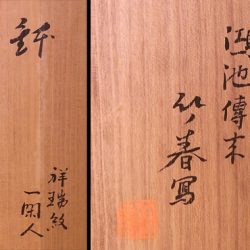 鉢
祥瑞紋
一閑人
鴻池傳来
竹春寫